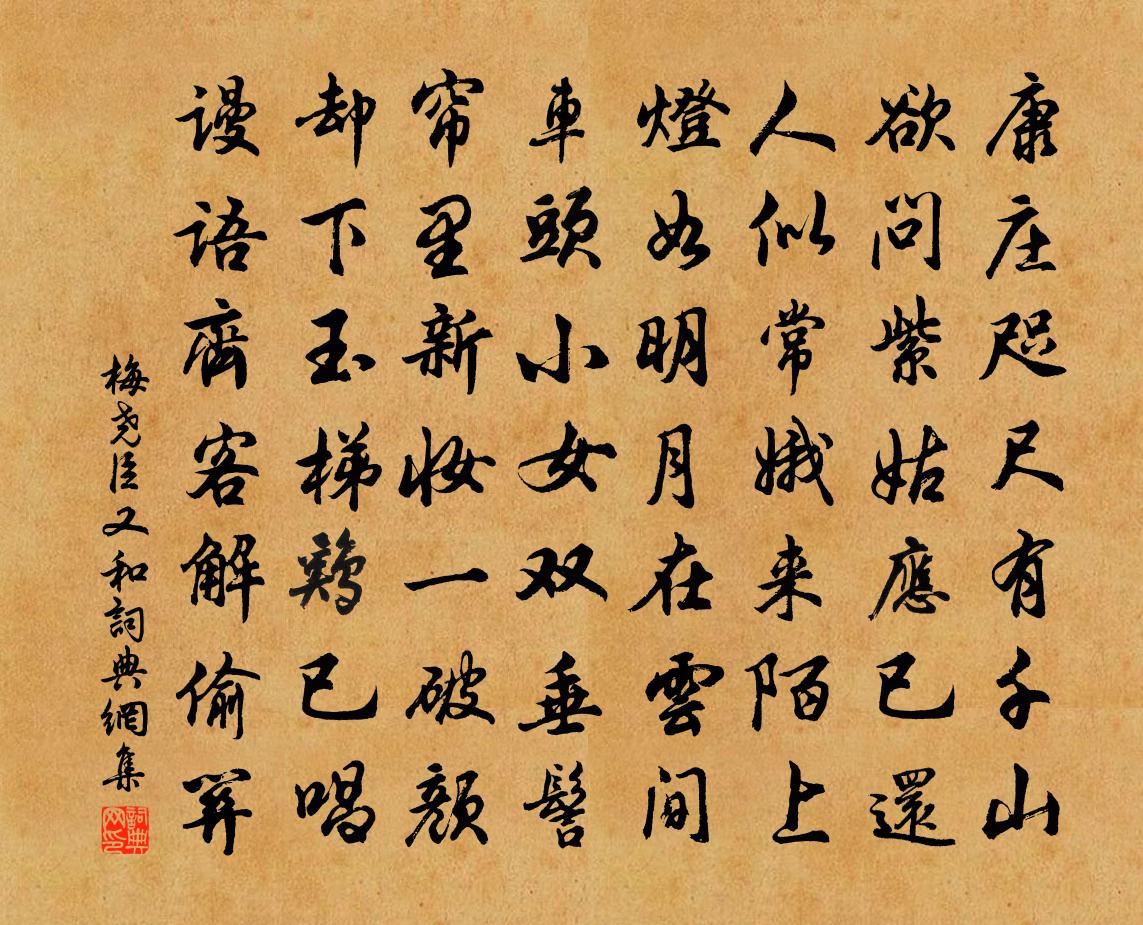 康庄咫尺有千山
欲问紫姑應已還
人似常娥来陌上
燈如明月在雲間
車頭小女双垂髻
帘里新妆一破颜
却下玉梯鷄已唱
谩语齊客解偷関
梅尧臣又和詞典網集
詞典网印